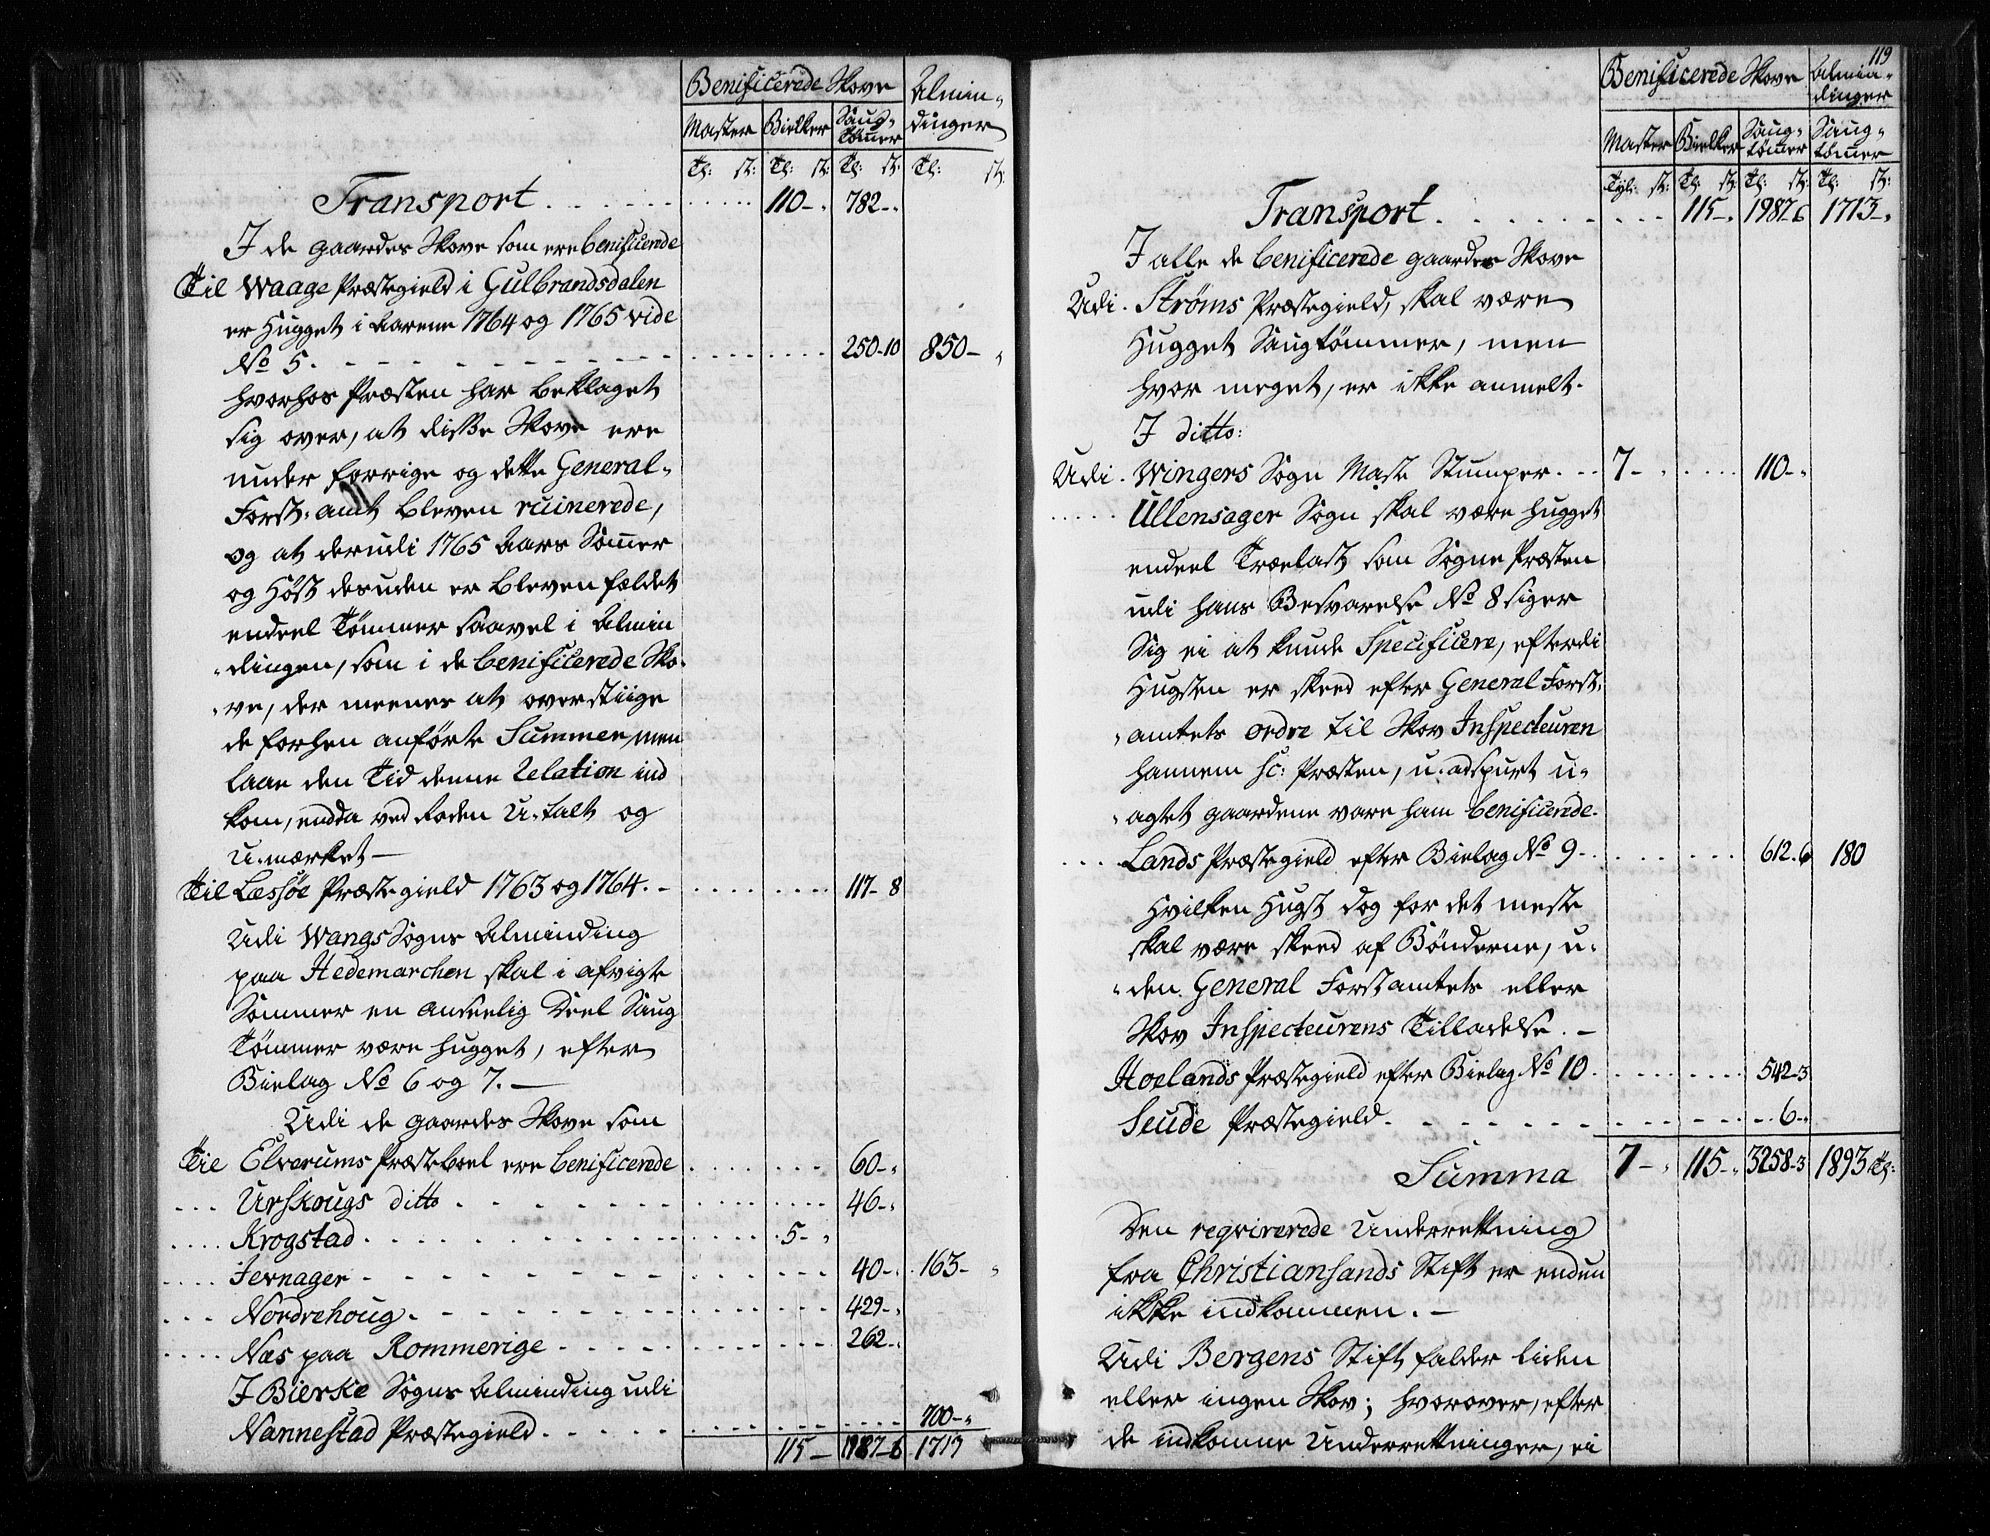 Benificerede Skove Almin-
Master Bielker Saug- dinger
tømmer
Tl: st: Tl: st: Tl: st: Tl: st:
Transport . . . . . . 110-" 782-"
I de gaardes Skove som ere benificerede
Til Waage Præstegield i Gulbrandsdalen
er Hugget i Aarene 1764 og 1765 vide
No 5. . . . . 250-10 850-"
hvorhos Præsten har beklaget
sig over, at disse Skove ere
under forrige og dette General-
Forst-amt bleven ruinerede,
og at derudi 1765 Aars Sommer
og Høst desuden er bleven fældet
endeel Tømmer saavel i Almin
-dingen, som i de benificerede Sko-
-ve, der meenes at overstiige
de forhen anførte Summer, men
laae den Tid denne Relation ind
kom, endda ved Roden U-talt og
U-mærket —
Til Lessøe Præstegield 1763 og 1764. - . . . . 117-8
Udi Wangs Sogns Alminding
paa Hedemarchen skal i afvigte
Sommer en anseelig Deel Saug
Tømmer være hugget, efter
Bielag No 6 og 7. —
Udi de gaardes Skove som
Til Elverums Præsteboel ere benificerede . . . . 60-"
. . . Urskougs ditto . . . . 46-"
. . . . Krogstad . . . . 5-"
. . . . Jevnager . . . . 40-" 163-"
. . . Nordrehoug . . . . 429-"
. . . . Næs paa Rommerige . . . . 262-"
I Bierke Sogns Alminding udi
Nannestad Præstegield . . . . 700-"
115- 1987-6 1713
119
Benificerede Skove Almin-
dinger
Master Bielker Saug- Saug-
tømmer tømmer
Tyl: st: Tl: st: Tl: st: Tl: st:
Transport . . . . . . 115-" 1987.6 1713-"
I alle de benificerede gaardes Skove
Udi . Strøms Præstegield, skal være
Hugget Saugtømmer, men
hvor meget, er ikke anmelt.
I ditto:
Udi . Wingers Sogn Mast Stumper . - - 7-" . . . . 110-"
. . . . . Ullensager Sogn skal være hugget
endeel Trælast som Sogne Præsten
udi hans Besvarelse No 8 siger
Sig ei at kunde Specificere, efterdi
Hugsten er skeed efter General Forst-
-amtets ordre til Skov Inspecteuren
hannem sc: Præsten, u-adspurt u-
-agtet gaardene vare ham benificerede.
. . . . Lands Præstegield efter Bielag No 9 . . . . 612.6 180
Hvilken Hugst dog for det meste
skal være skeed af Bønderne, u-
-den General Forstamtets eller
Skov Inspecteurens Tilladelse. -
Hoelands Præstegield efter Bielag No 10 . . . . 542-3
Seude Præstegield . . . . 6-"
Summa 7-" 115-" 3258-3 1893 Tl:
Den reqvirerede Underretning
fra Christiansands Stift er endnu
ikke indkommen. -
Udi Bergens Stift falder liden
eller ingen Skov; hvorover, efter
de indkomne Underretninger, ei